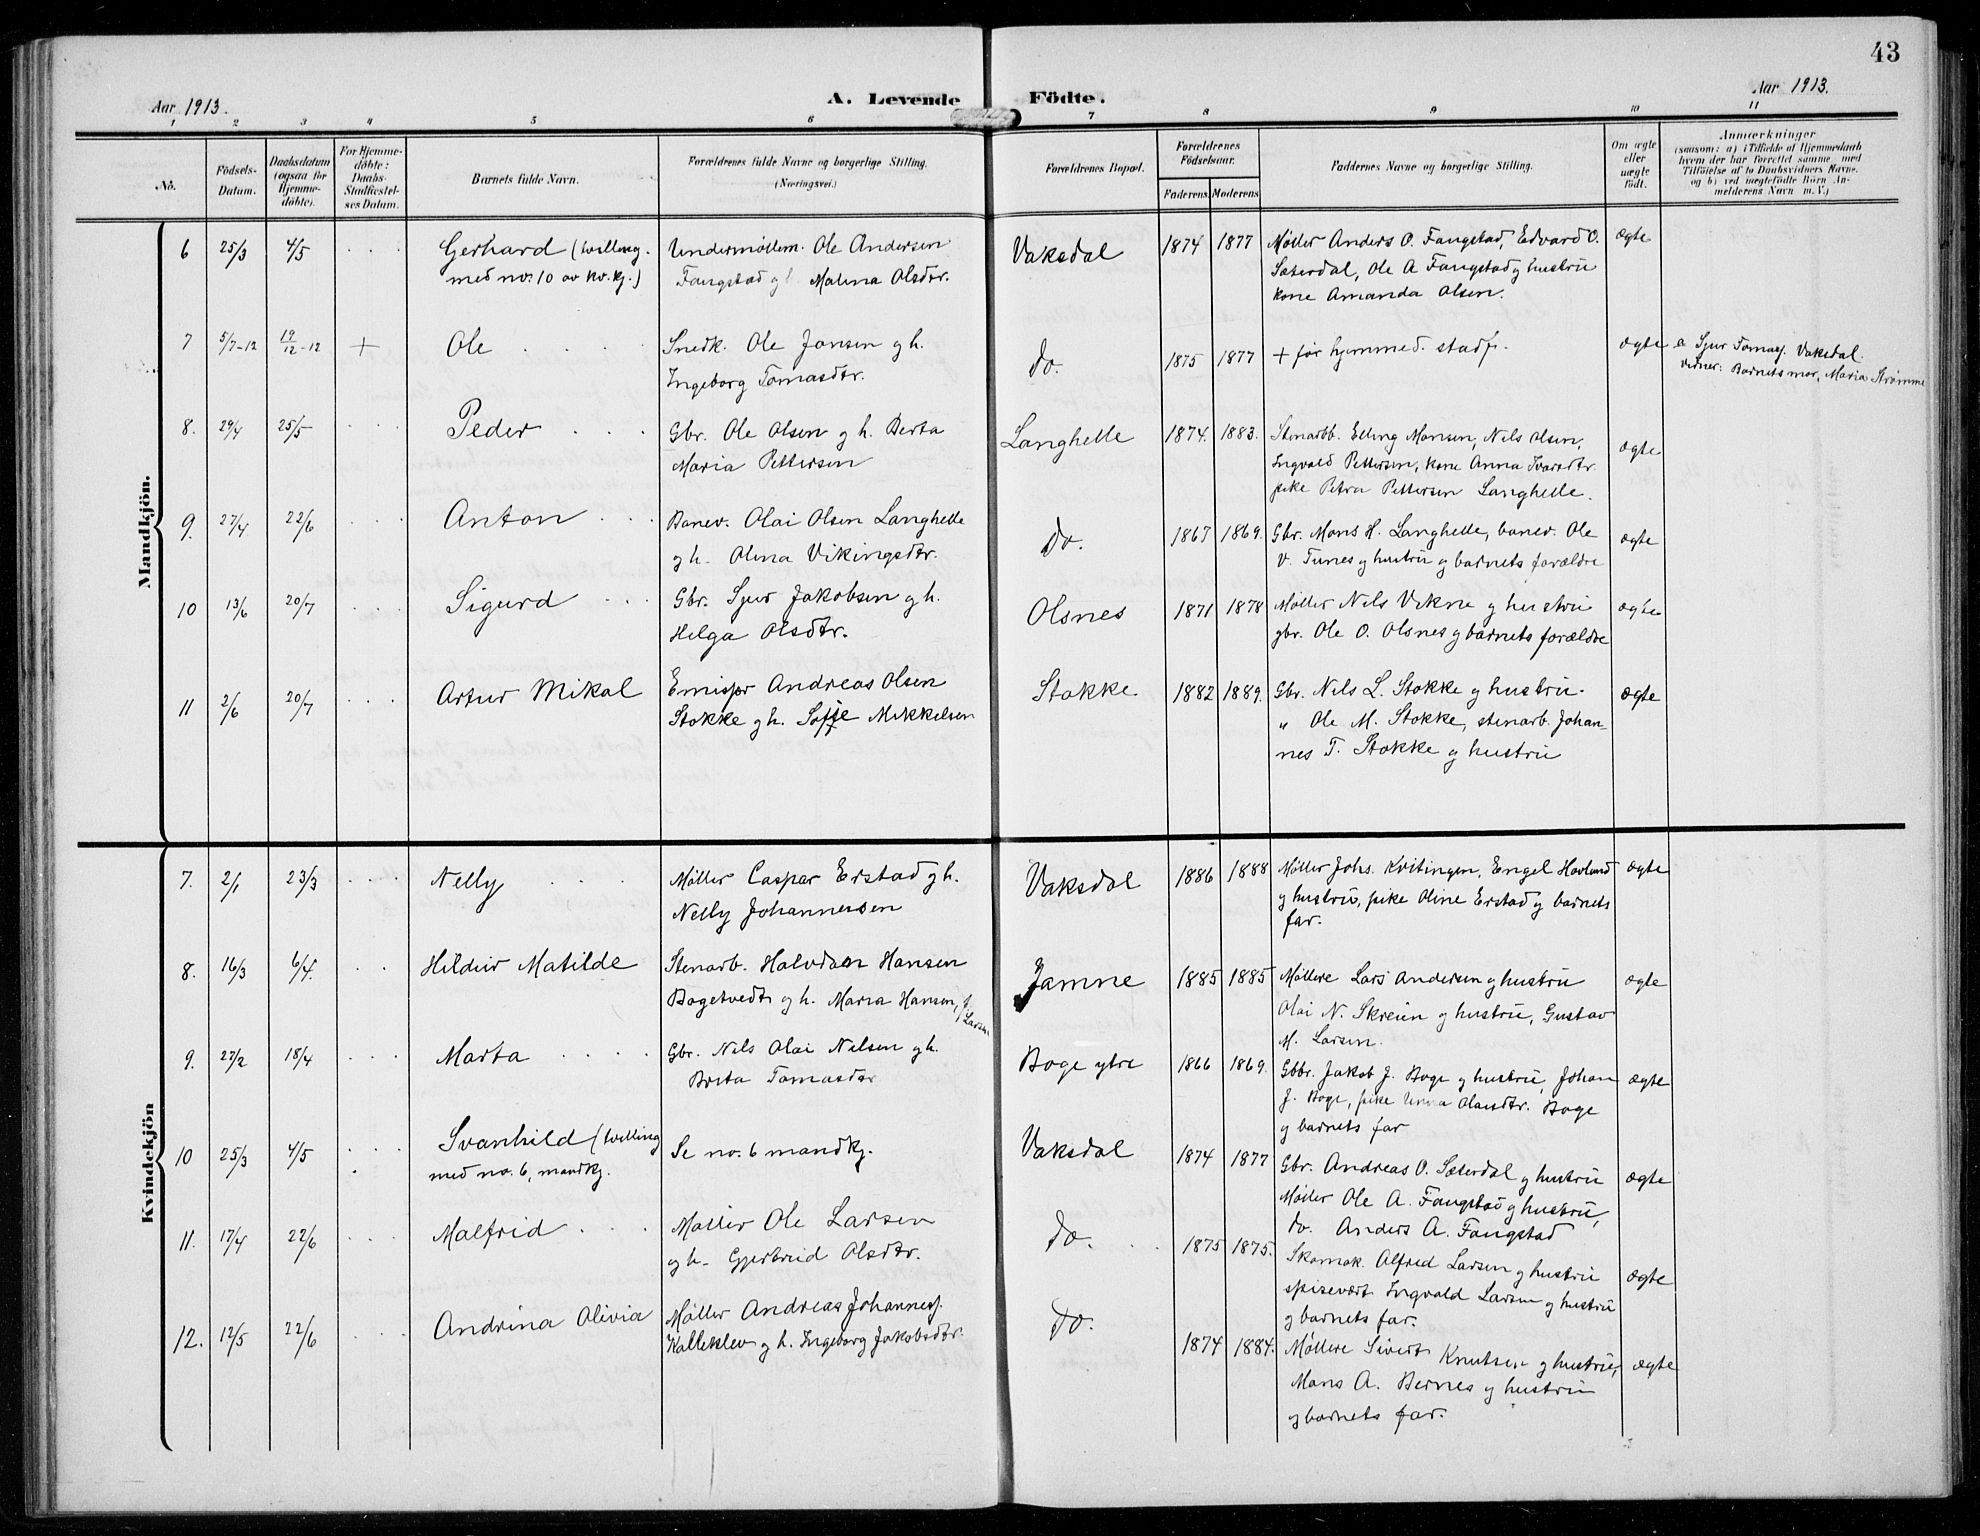 43
Aar 1913.
A. Levende Födte.
Aar 1913.
1 2 3 4 5 6 7 8 9 10 11
No.
Födsels-Datum.
Daabsdatum (ogsaa for Hjemme-döbte).
For Hjemme-döbte: Daabs-Stadfæstel-ses Datum.
Barnets fulde Navn.
Forældrenes fulde Navne og borgerlige Stilling.
(Næringsvei.)
Forældrenes Bopæl.
Forældrenes Födselsaar.
Faderens. Moderens.
Faddernes Navne og borgerlige Stilling.
Om ægte eller uægte födt.
Anmærkninger
(saasom: a) i Tilfælde af Hjemmedaab
hvem der har forrettet samme, med
Tilföielse af to Daabsvidners Navne.
og b) ved uægtefödte Börn An-
melderens Navn m. V.)
Mandkjön.
6 25/3 4/5 Gerhard (tvilling. Undermöllem. Ole Andersen Vaksdal 1874 1877 Møller Anders O. Fangstad, Edvard O. ægte
med no. 10 av kv.kj.) Fangstad g Malina Olsdtr. Sæterdal, Ole A Fangstad g hustru
kone Amanda Olsen.
7 5/7-12 19/12-12 + Ole Snedk. Ole Jansen g h. do. 1875 1877 + før hjemmed. stadf. ægte a Sjur Tomasf. Vaksdal.
Ingeborg Tomasdtr. vidner: Barnets mor, Maria Strømme
8. 29/4 25/5 Peder Gbr. Ole Olsen g h. Berta Langhelle 1874. 1883. Stenarbb. Elling Monsen, Nils Olsen, ægte
Maria Pettersen Ingvald Pettersen, kone Anna Ivarsdtr.
pike Petra Pettersen Langhelle.
9. 27/4 22/6 Anton Banev. Olai Olsen Langhelle do. 1867 1869. Gbr. Mons H. Langhelle, banev. Ole ægte
g h. Olina Vikingsdtr. V. Tunes g hustru g barnets forældre
10 13/6 20/7 Sigurd Gbr. Sjur Jakobsen g h. Olsnes 1871 1878 Møller Nils Vikne g hustru ægte
Helga Olsdtr. gbr. Ole O. Olsnes g barnets forældre
11 2/6 20/7 Artur Mikal Emispr Andreas Olsen Stokke 1882 1889. Gbr. Nils L. Stokke g hustru. ægte
Stokke g h. Soffie Mikkelsen " Ole M. Stokke, stenarb. Johan-
nes T. Stokke g hustru
Kvindekjön
7. 2/1 23/3 Nelly Møller Caspar Erstad g h. Vaksdal 1886 1888 Møller Johs. Kvitingen, Engel Havland ægte
Nelly Johannesen g hustru, pike Oline Erstad g barnets
far.
8. 16/3 6/4. Hildur Matilde Stenarb. Halvdan Hansen Jamne 1885 1885 Møllere Lars Andersen g hustru ægte
Bogetvedt g h. Maria Hansen, f. Larsen Olai N. Skreien g hustru, Gustav
M. Larsen.
9. 27/2 18/4 Marta Gbr. Nils Olai Nilsen g h. Boge ytre 1866 1869. Gbbr. Jakob J. Boge g hustru, Johan ægte
Brita Tomasdtr J. Boge, pike Olaisdtr. Boge
g barnets far
10 25/3 4/5 Svanhild (tvilling Se no. 6 mandkj. Vaksdal 1874 1877 Gbr. Andreas O. Sæterdal g hustru ægte
med no. 6, mandkj. Møller Ole A. Fangstad g hustru,
do. Anders A. Fangstad
11. 17/4 22/6 Malfrid Møller Ole Larsen do. 1875 1875. Skomak. Alfred Larsen g hustru ægte
g h. Gjertrud Olsdtr. spisevært Ingvald Larsen g hustru
g barnets far.
12. 12/5 22/6 Andrina Olivia Møller Andreas Johannesf. do. 1874 1884. Møllere Sivert Knutsen g hustru, ægte
Kallekleiv g h. Ingeborg Jakobsdtr. Mons A. Bernes g hustru
g barnets far.